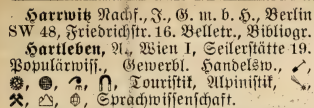 Harrwitz Nachf., J., G. m. b. H., Berlin
SW 48, Friedrichstr. 16. Belletr., Bibliogr.
Hartleben, A., Wien I, Seilerstätte 19.
Populärwiss., Gewerbl. Handelsw.,
Touristik, Alpinistik,
Sprachwissenschaft.